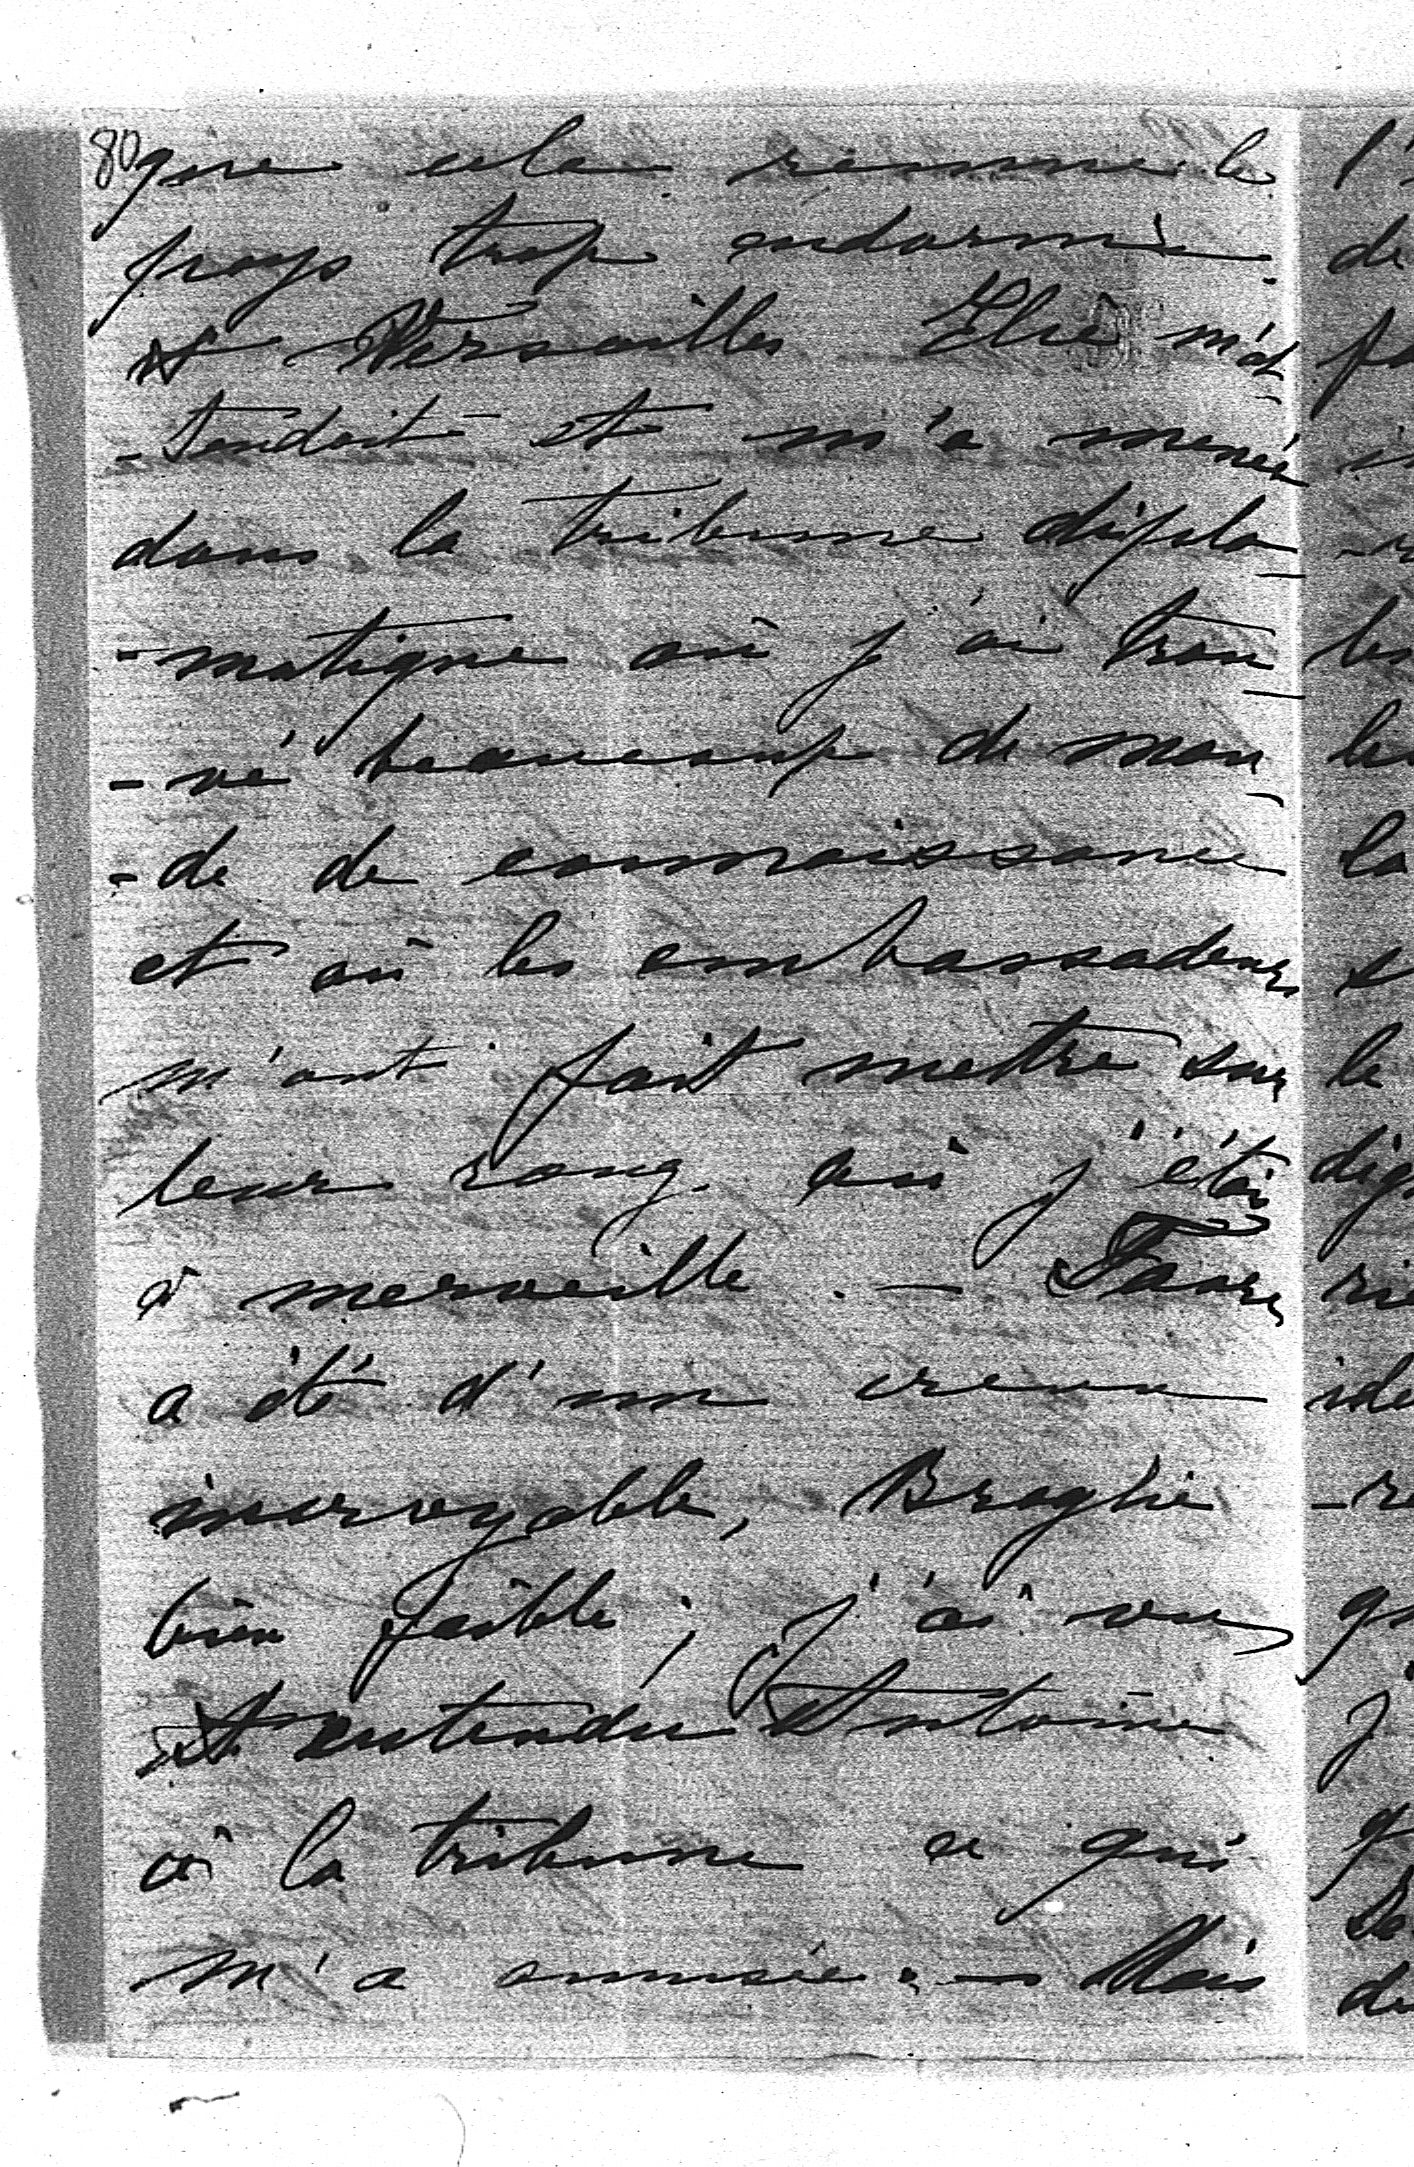 80
que cela remue le
pays trop endormi.
A Versailles Elie m'at
-tendait et m'a menée
dans la tribune diplo
-matique où j'ai trou
-vé beaucoup de mon
-de de connaissance
et où les ambassadeurs
m'ont fait mettre sur
leur rang où j'étais
à merveille. — Favre
a été d'un creux
incroyable, Broglie
bien faible ; j'ai vu
et entendu Antoine
à la tribune ce qui
m'a amusée. — Mais